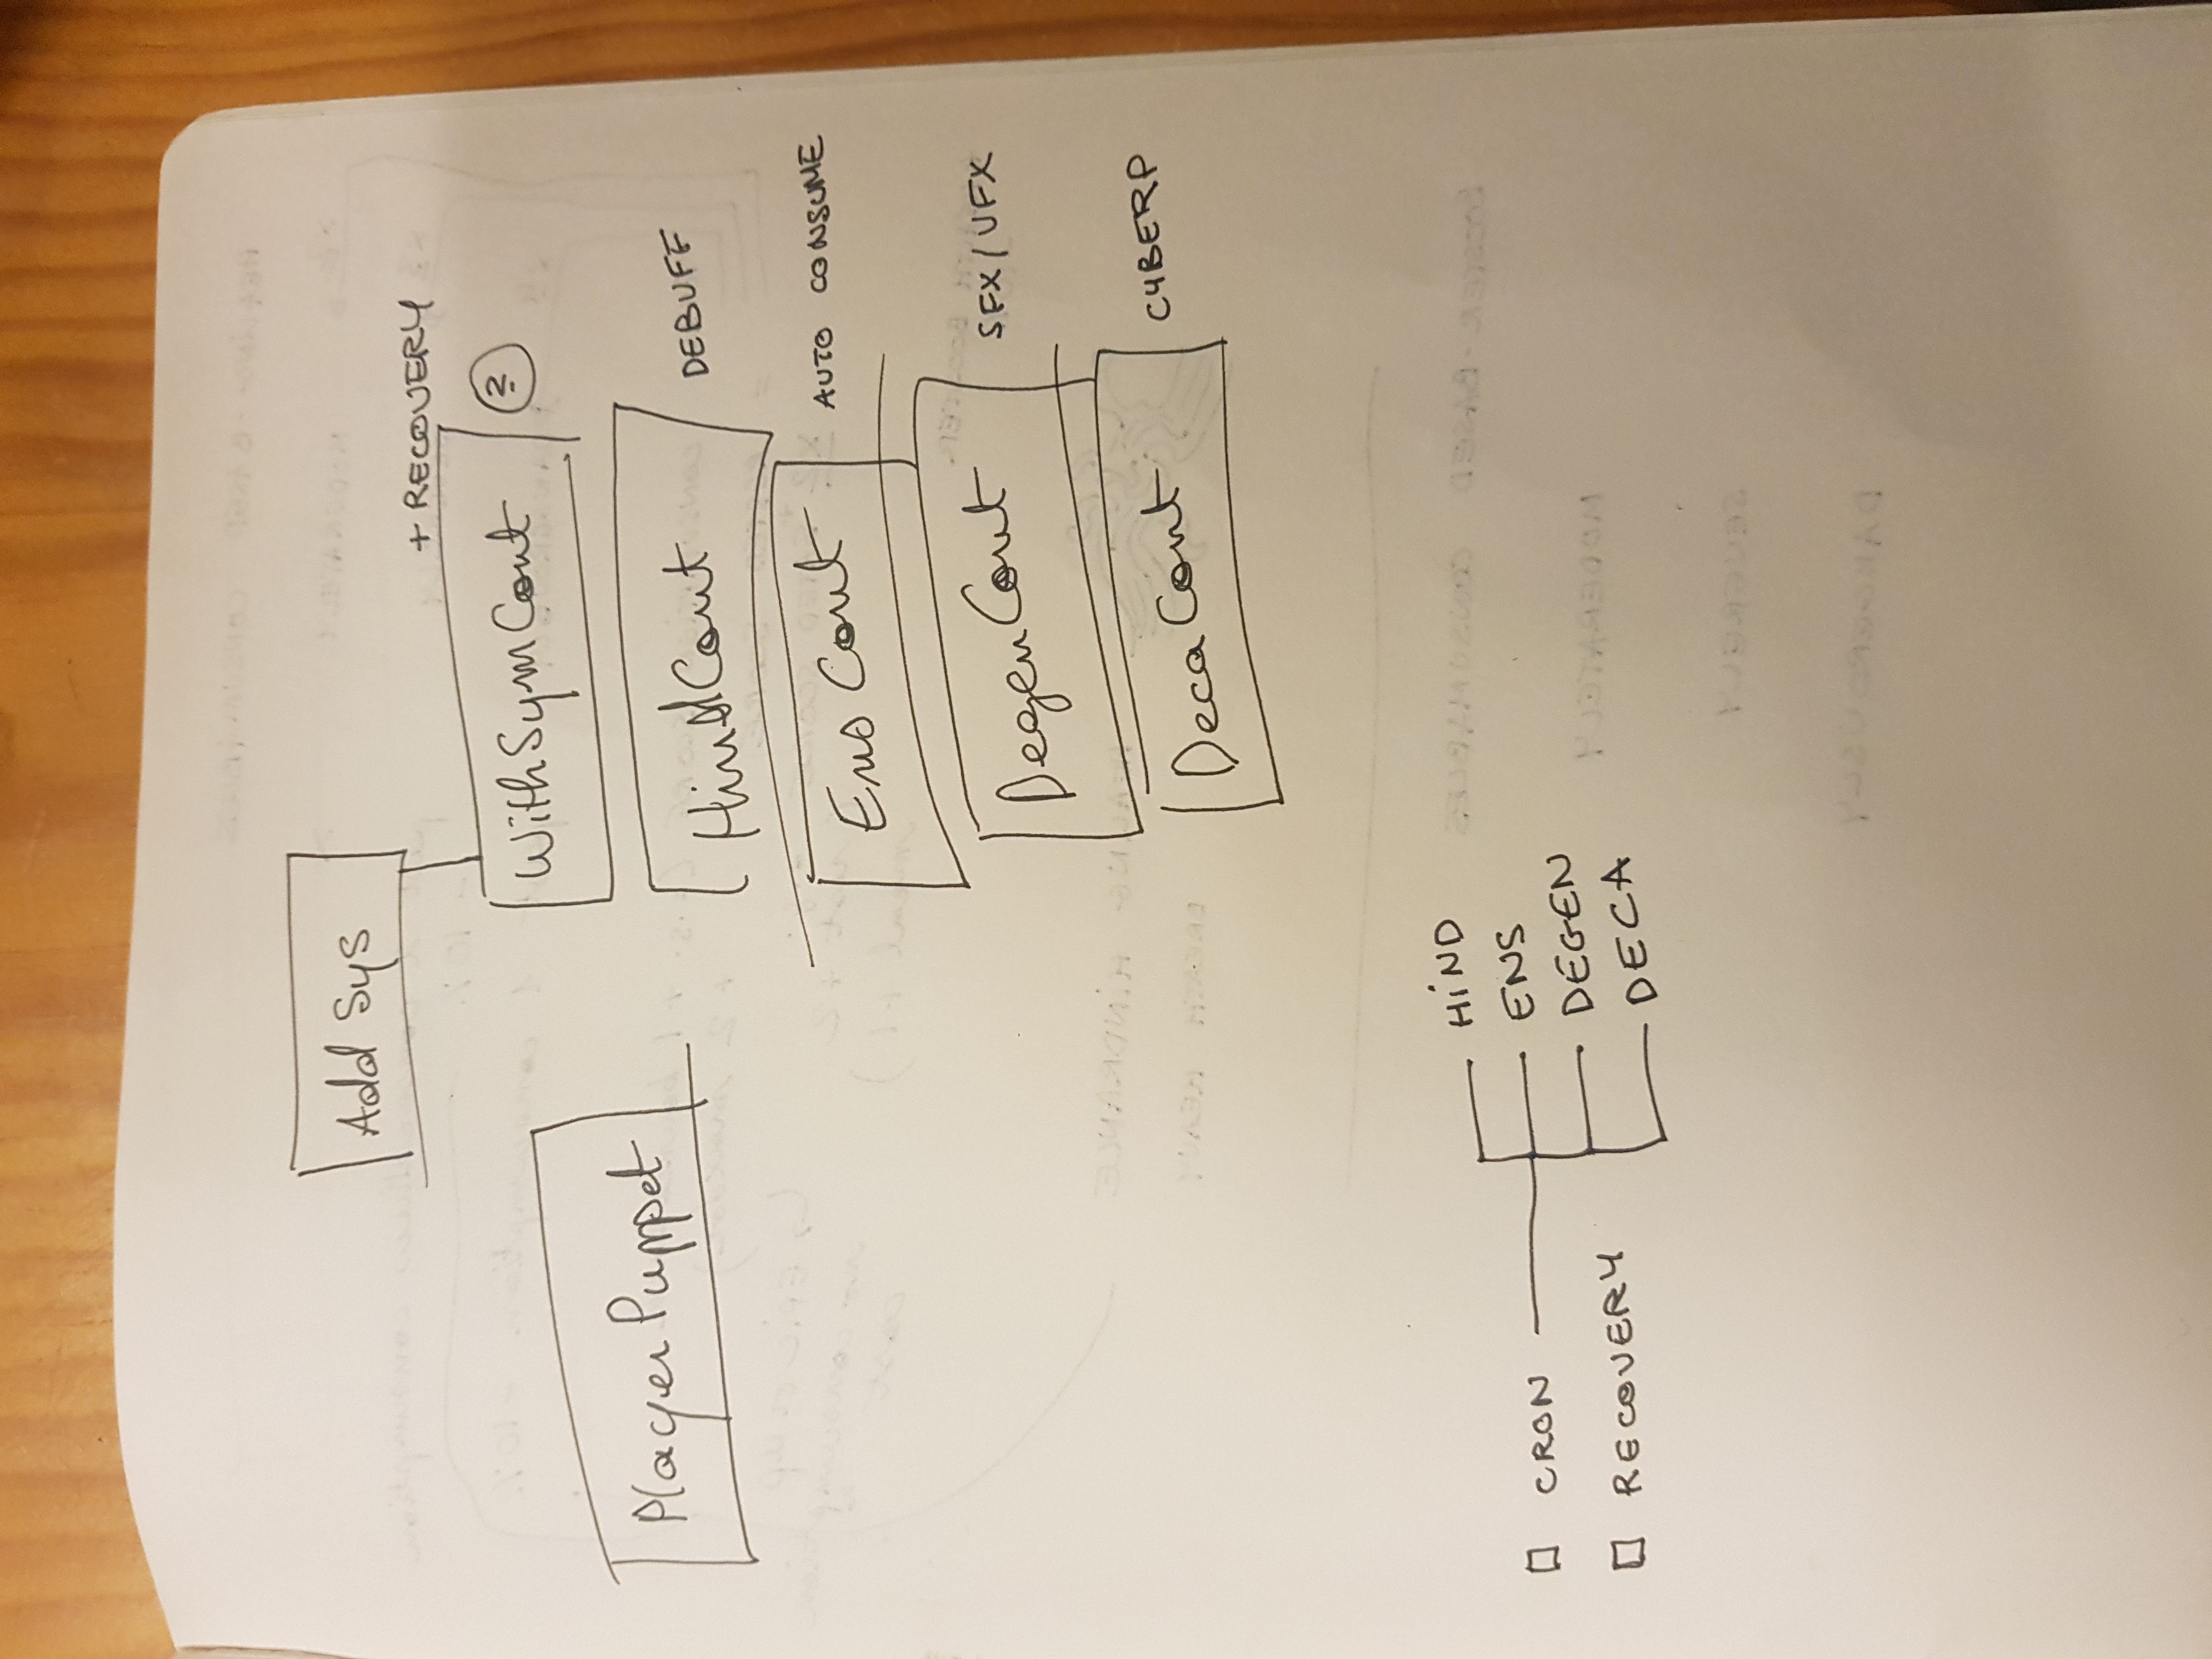 Add Sys
+ RECOVERY
WithSymCont
?
PlayerPuppet
HindCont
DEBUFF
Ens Cont
AUTO CONSUME
DegenCont
SFX/VFX
DecaCont
CYBERP
HIND
CRON
ENS
DEGEN
RECOVERY
DECA